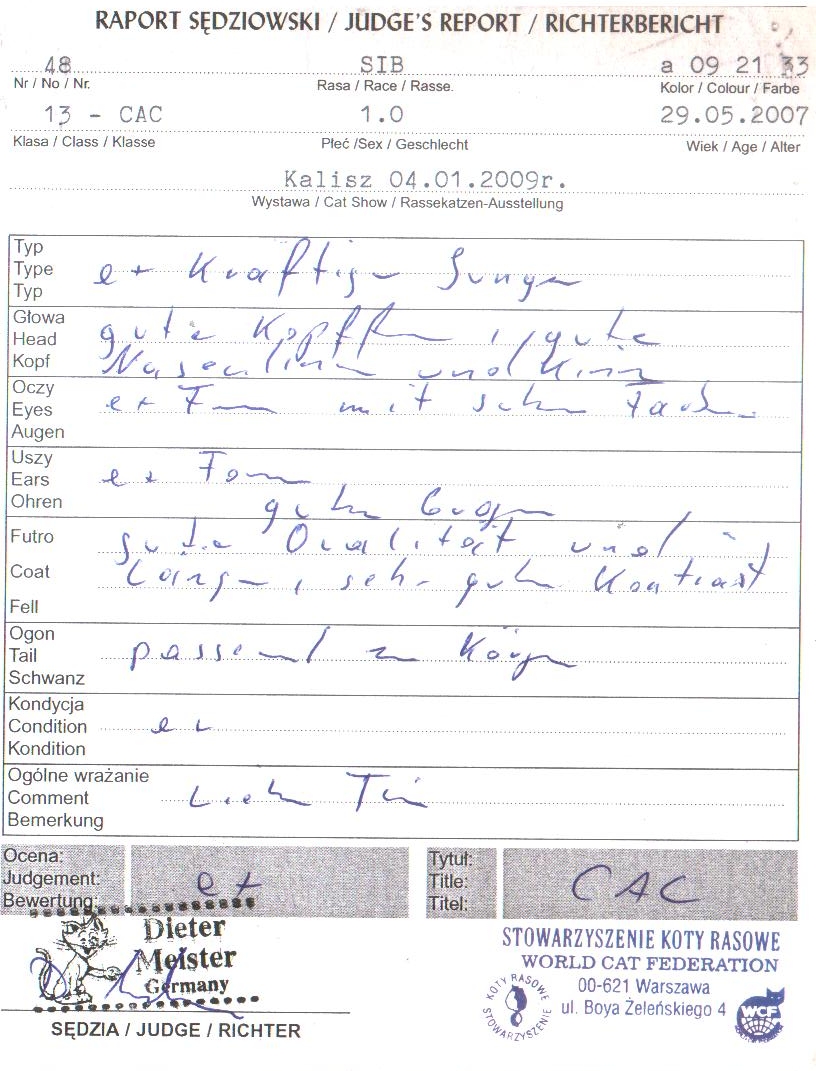 RAPORT SĘDZIOWSKI / JUDGE'S REPORT / RICHTERBERICHT
48 SIB a 09 21 33
Nr / No / Nr. Rasa / Race / Rasse. Kolor / Colour / Farbe
13 - CAC 1.0 29.05.2007
Klasa / Class / Klasse Płeć /Sex / Geschlecht Wiek / Age / Alter
Kalisz 04.01.2009r.
Wystawa / Cat Show / Rassekatzen-Ausstellung
Typ
Type
Typ
ex kräftiger Junge
Głowa
Head
Kopf
gute Kopfform, gute
Nasenlinie und Kinn
Oczy
Eyes
Augen
ex Form mit
Uszy
Ears
Ohren
ex Form
gute
Futro
Coat
Fell
gute Qualität und
Länge, sehr gute Kontrast
Ogon
Tail
Schwanz
passend zu Körper
Kondycja
Condition
Kondition
ex
Ogólne wrażanie
Comment
Bemerkung
Ocena:
Judgement:
Bewertung:
ex
Tytuł:
Title:
Titel:
CAC
Dieter
Meister
Germany
SĘDZIA / JUDGE / RICHTER
STOWARZYSZENIE KOTY RASOWE
WORLD CAT FEDERATION
00-621 Warszawa
ul. Boya Żeleńskiego 4
KOTY RASOWE
STOWARZYSZENIE
WCF